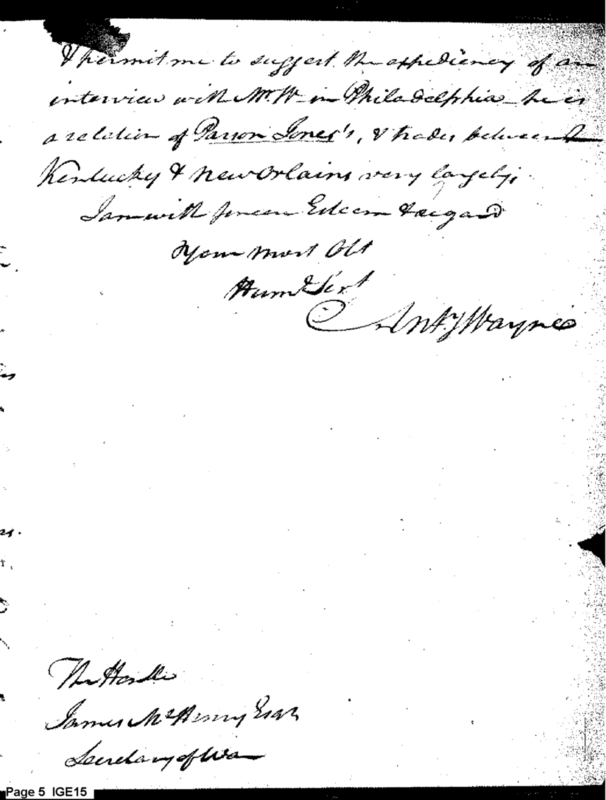 & permit me to suggest the expediency of an
interview with Mr. W— in Philadelphia— he is
a relation of Parson Jones's, & trades between
Kentucky & New Orlains very largely;
I am with sincere Esteem & regard
Your most Obt
Humbl Sert
Anty Wayne
The Honble
James McHenry Esqr
Secretary of War
Page 5 IGE15